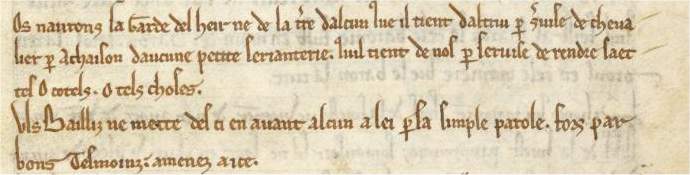 Os naurons la Garde del heir ne de la tr̄re dalcun que il tient daltrui per seruise de cheua
lier per achaison daucune petite serianterie. quil tient de nos per seruise de rendre saet
tes O cotels. O tels choses.
Uls Bailliz ne mette des ci en auant alcun a lei per sa simple parole. fors par
bons Tesmoinz. amenez a ice.